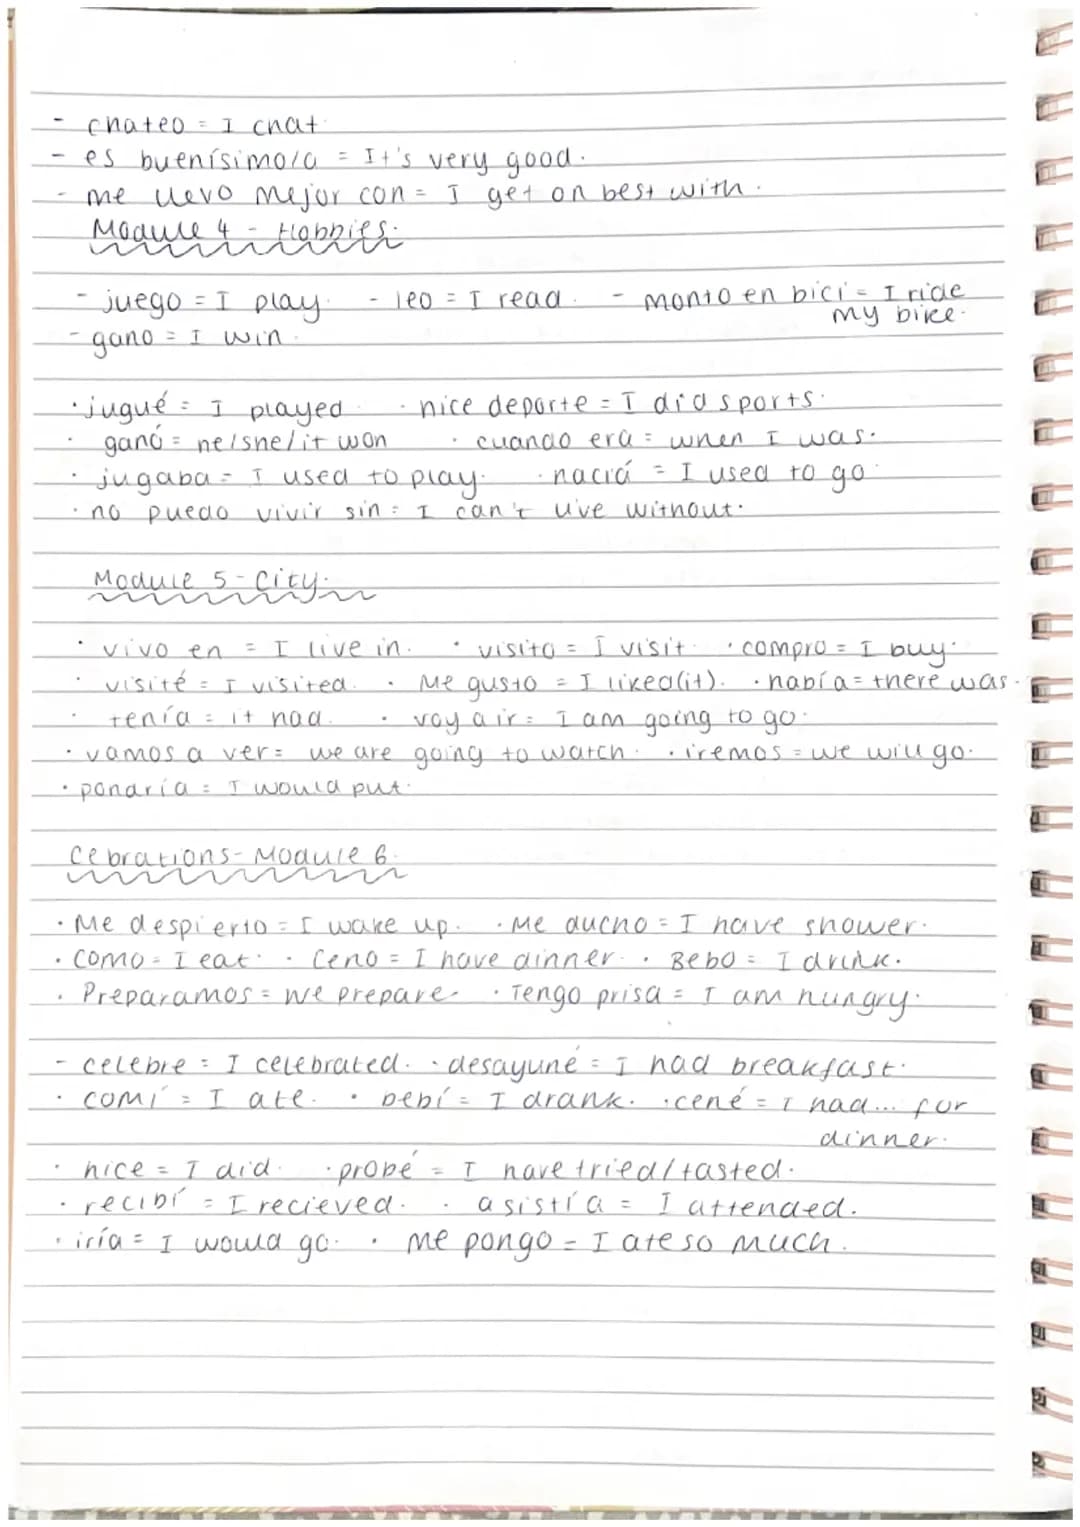 - chateo = I chat.
- es buenísimo/a = It's very good.
- me llevo mejor con = I get on best with.
Module 4 - Hobbies.
- juego = I play. - leo = I read. - monto en bici = I ride my bike.
- gano = I win.
· jugué = I played. · hice deporte = I did sports.
· ganó = he/she/it won · cuando era = when I was.
· jugaba = I used to play. · hacía = I used to go.
· no puedo vivir sin = I can't live without.
Module 5 - City.
· vivo en = I live in. · visito = I visit. · compro = I buy.
· visité = I visited. · Me gusto = I liked (it). · había = there was.
· tenía = it had. · voy a ir = I am going to go.
· vamos a ver = we are going to watch. · iremos = we will go.
· pondría = I would put.
Cebrations - Module 6.
· Me despierto = I wake up. · Me ducho = I have shower.
· Como = I eat. · Ceno = I have dinner. · Bebo = I drink.
· Preparamos = we prepare. · Tengo prisa = I am hungry.
- celebre = I celebrated. · desayuné = I had breakfast.
· comí = I ate. · bebí = I drank. · cené = I had... for dinner.
· hice = I did. · probé = I have tried/tasted.
· recibí = I recieved. · asistía = I attended.
· iría = I would go. · me pongo = I ate so much.